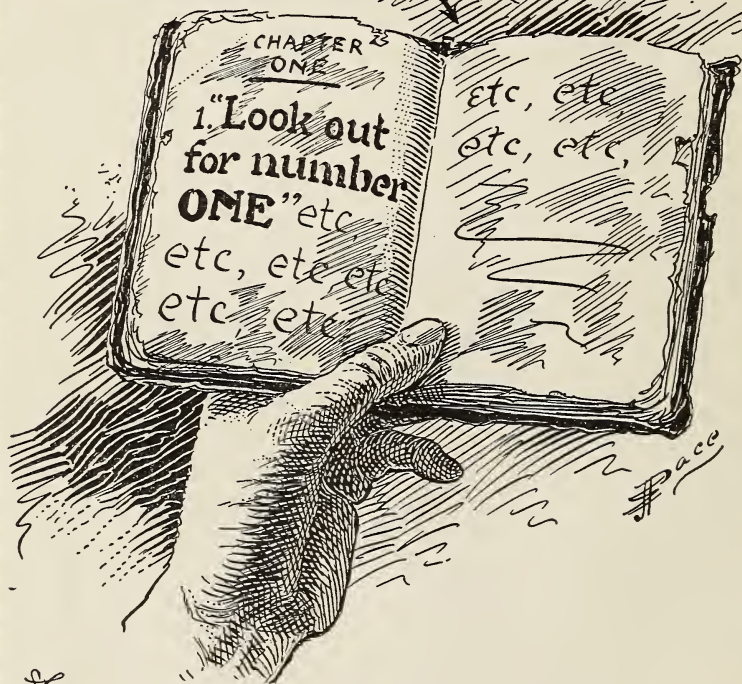 CHAPTER
ONE
1. "Look out
for number
ONE" etc,
etc, etc, etc
etc, etc,
etc, etc,
etc, etc,
Pace